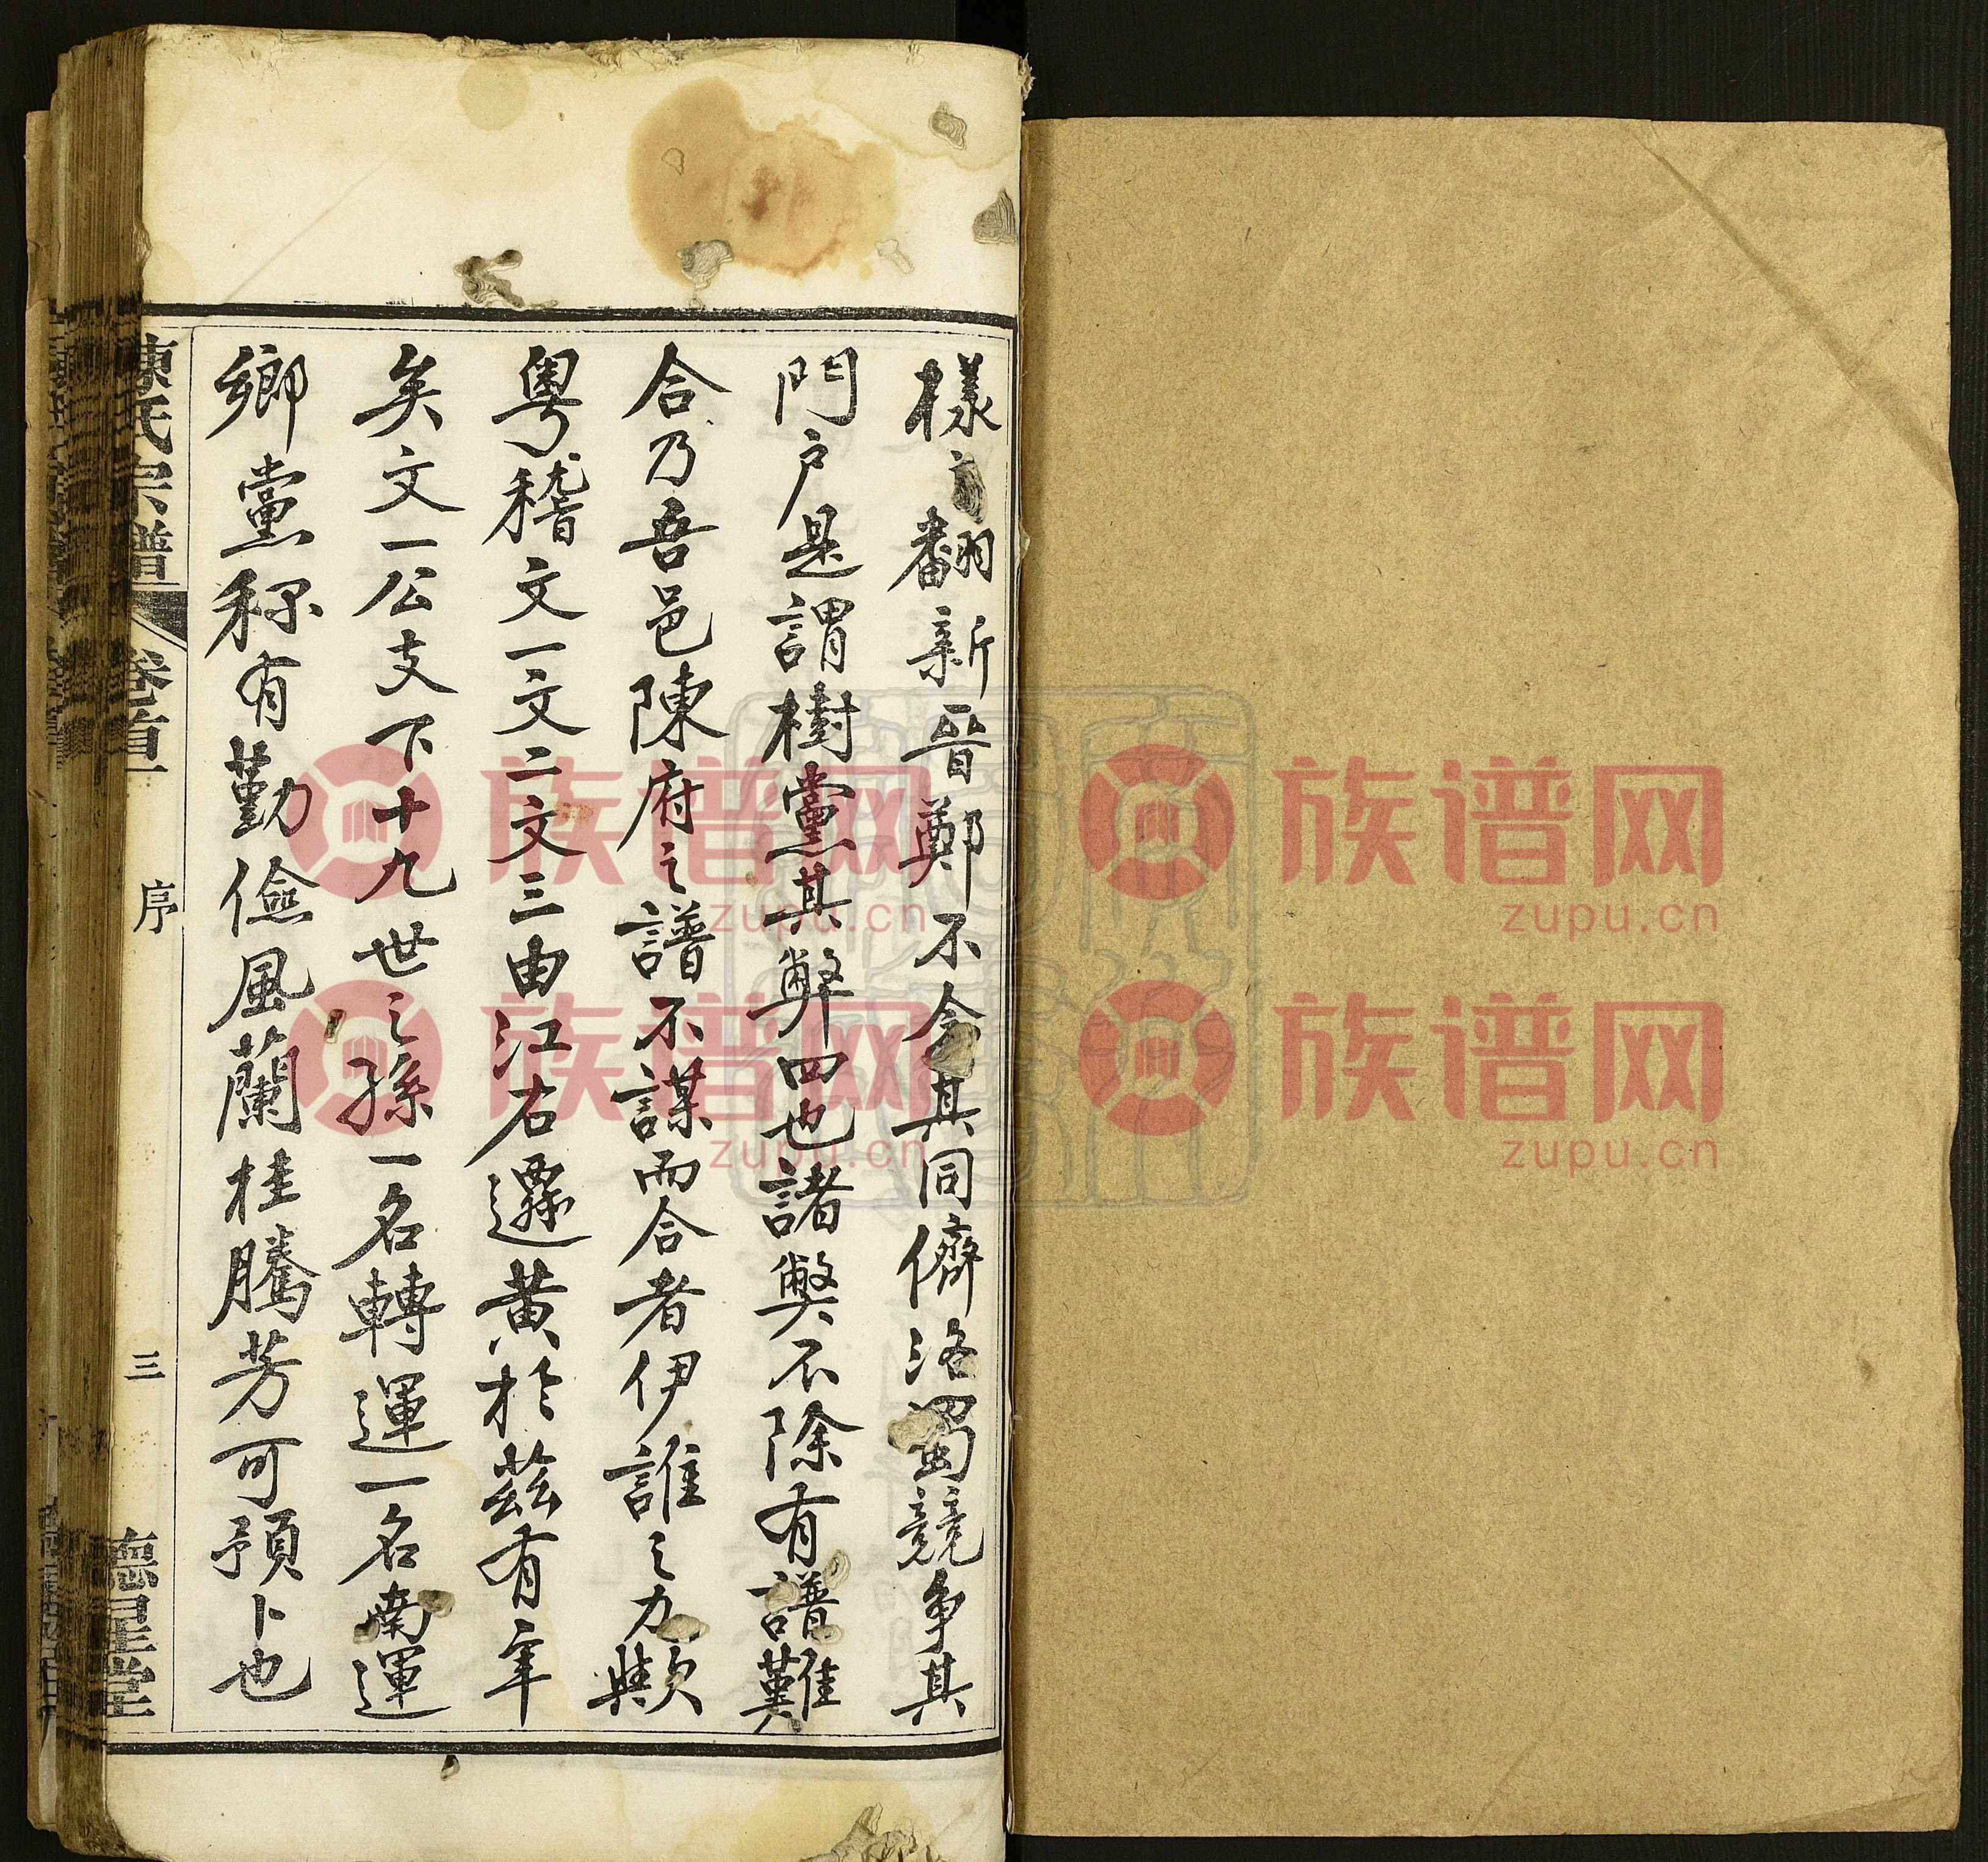 樣〻翻新晉鄭不令其同儕洛蜀競争其
門户是謂樹黨其弊四也諸獘不除有譜難
合乃吾邑陳府之譜不謀而合者伊誰之力歟
粤稽文一文二文三由江右遷黄於茲有年
矣文一公支下十九世之孫一名轉運一名南運
鄉黨称有勤儉風蘭桂騰芳可預卜也
陳氏宗譜
卷首一
序
三
德星堂
族谱网
zupu.cn
族谱网
zupu.cn
族谱网
zupu.cn
族谱网
zupu.cn